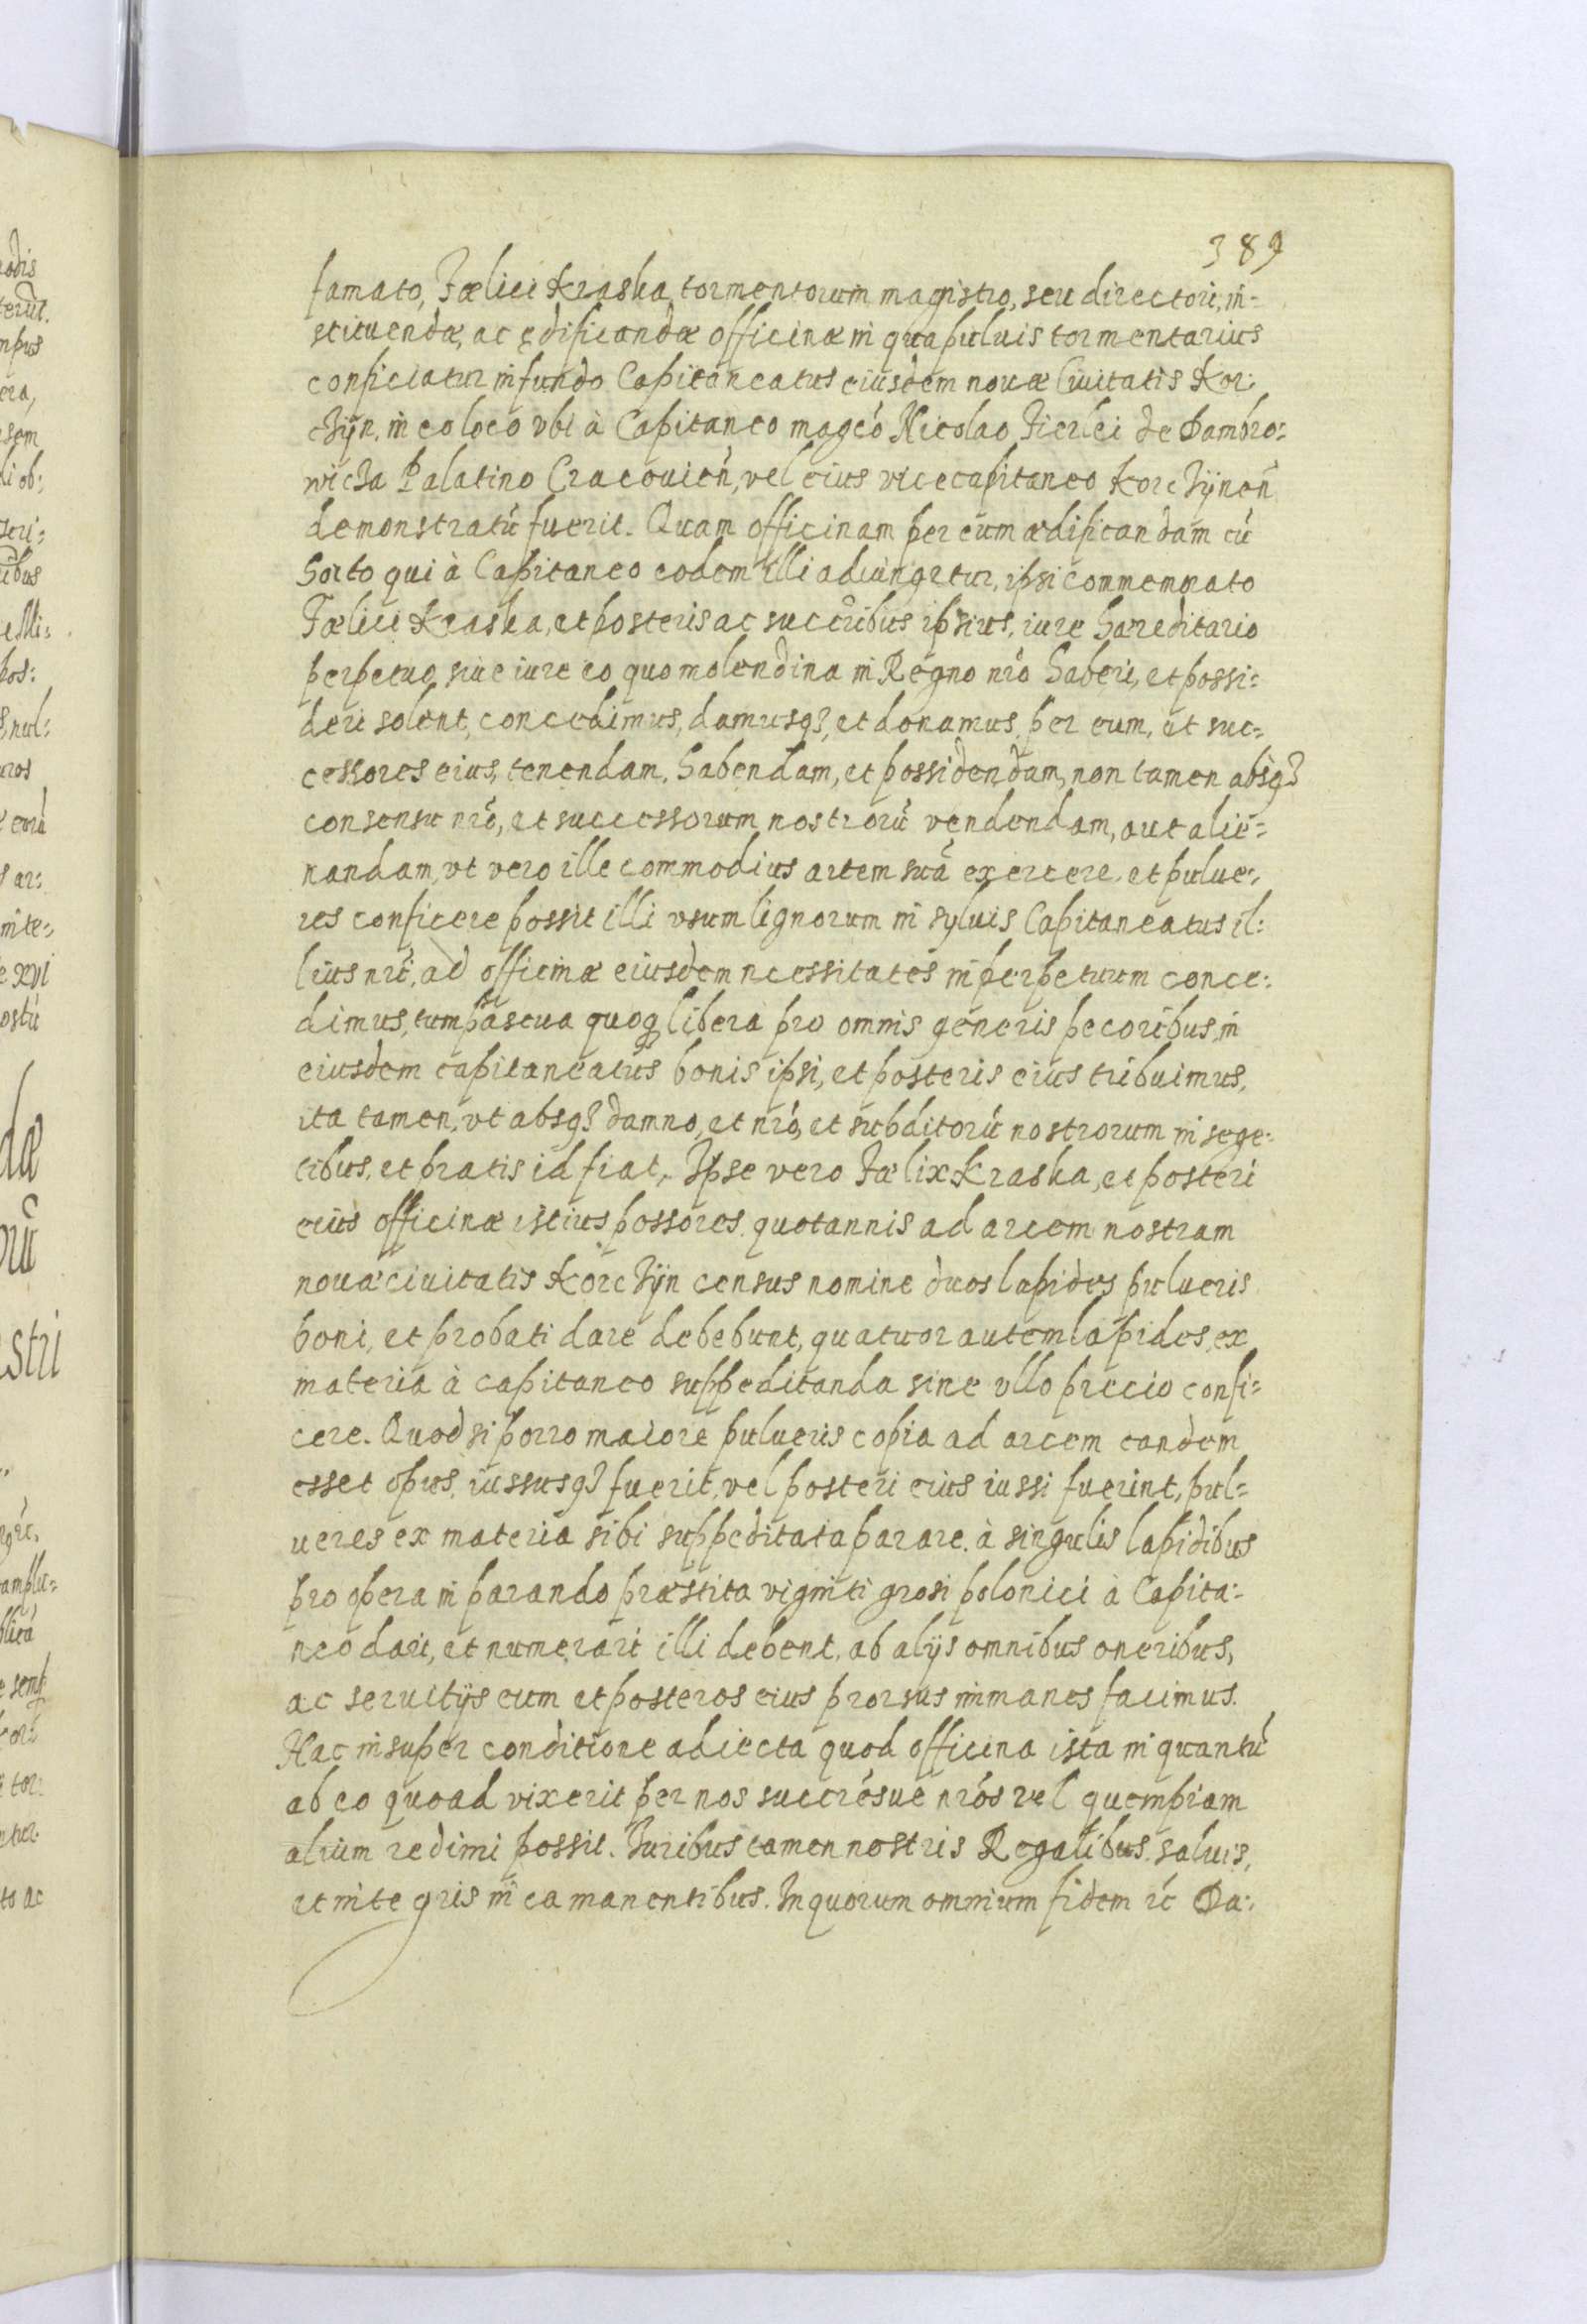 389
famato, Fœlici Kraska, tormentorum magistro, seu directori, in-
stituendæ, ac ędificandæ officinæ in qua puluis tormentarius
conficiatur in fundo Capitaneatus eiusdem nouæ Ciuitatis Kor:
cżÿn, in eo loco vbi à Capitaneo magcó Nicolao Fierlei de Dambro:
wicża Palatino Cracouień, vel eius vicecapitaneo Korcżÿneń
demonstratú fuerit. Quam officinam per eum ædificandam cú
horto qui à Capitaneo eodem illi adiungetur, ipsi commemorato
Fœlici Kraska, et posteris ac succribus ipsius, iure hæreditario
perpetuo, siue iure eo quo molendina in Regno nró haberi, et possi:
deri solent, concedimus, damusq3, et donamus, per eum, et suc-
cessores eius, tenendam, habendam, et possidendam, non tamen absq3
consensu nró, et successorum nostrorú vendendam, aut alie-
nandam, vt vero ille commodius artem suã exercere, et pulue-
res conficere possit illi vsum lignorum in syluis Capitaneatus il:
lius nrí, ad officinæ eiusdem necessitates in perpetuum conce:
dimus, tum pascua quoq3 libera pro omnis generis pecoribus, in
eiusdem capitaneatus bonis ipsi, et posteris eius tribuimus,
ita tamen, vt absq3 damno, et nró, et subditorú nostrorum in sege-
tibus, et pratis id fiat. Ipse vero Fælix Kraska, et posteri
eius officinæ istius possores quotannis ad arcem nostram
nouæ ciuitatis Korcżÿn census nomine duos lapides pulueris
boni, et probati dare debebunt, quatuor autem lapides, ex
materia à capitaneo suppeditanda sine vllo precio confi-
cere. Quod si porro maiore pulueris copia ad arcem eandem
esset opus, iussusq3 fuerit, vel posteri eius iussi fuerint, pul-
ueres ex materia sibi suppeditata parare, à singulis lapidibus
pro opera in parando præstita viginti grosi polonici à Capita:
neo dari, et numerari illi debent, ab alÿs omnibus oneribus,
ac seruitÿs eum et posteros eius prorsus immanes facimus.
Hac insuper conditione adiecta quod officina ista in quantú
ab eo quoad vixerit per nos succrésue nrós vel quempiam
alium redimi possit. Iuribus tamen nostris Regalibus saluis,
et integris in ea manentibus. In quorum omnium fidem ić Da: